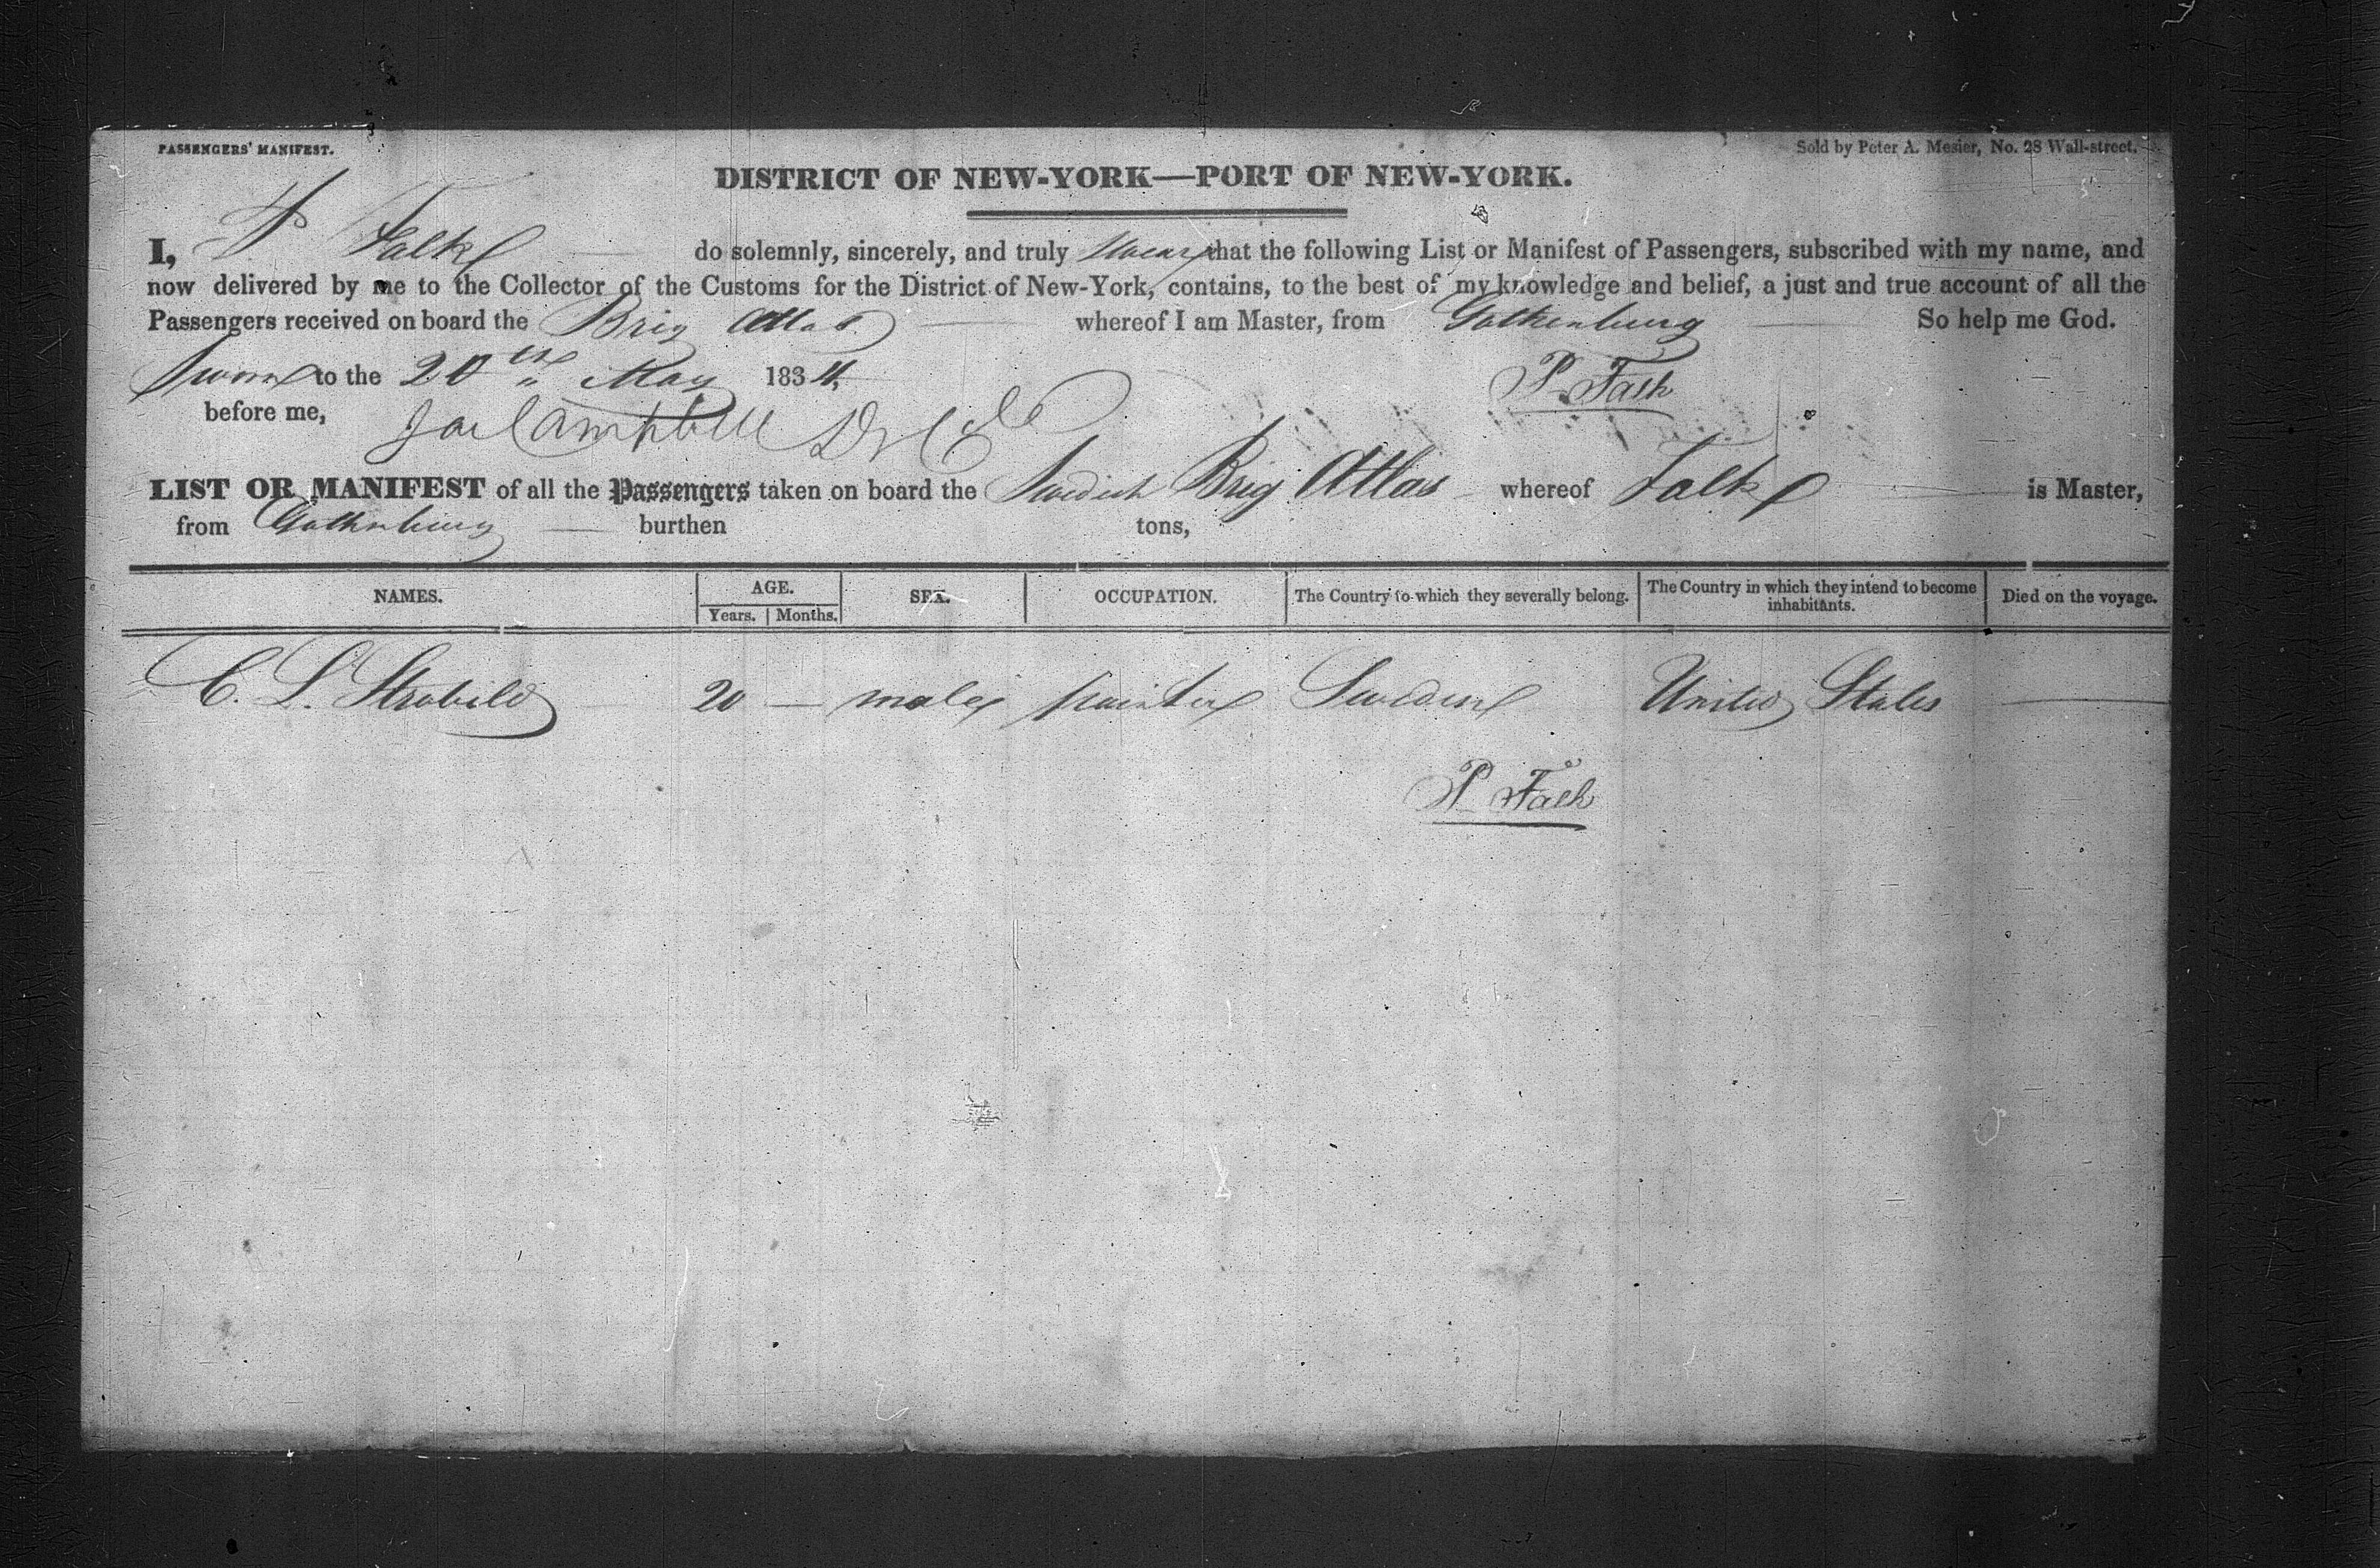 PASSENGERS' MANIFEST.
Sold by Peter A. Mesier, No. 28 Wall-street.
DISTRICT OF NEW-YORK—PORT OF NEW-YORK.
I, P Falk do solemnly, sincerely, and truly swear that the following List or Manifest of Passengers, subscribed with my name, and
now delivered by me to the Collector of the Customs for the District of New-York, contains, to the best of my knowledge and belief, a just and true account of all the
Passengers received on board the Brig Atlas whereof I am Master, from Gothenburg So help me God.
Sworn to the 20th May 1834
P Falk
before me, Campbell
LIST OR MANIFEST of all the Passengers taken on board the Swedish Brig Atlas whereof Falk is Master,
from Gothenburg burthen tons,
NAMES. AGE. SEX. OCCUPATION. The Country to which they severally belong. The Country in which they intend to become inhabitants. Died on the voyage.
Years. Months.
C. L. Strobild 20 — male painter Sweden United States
P Falk